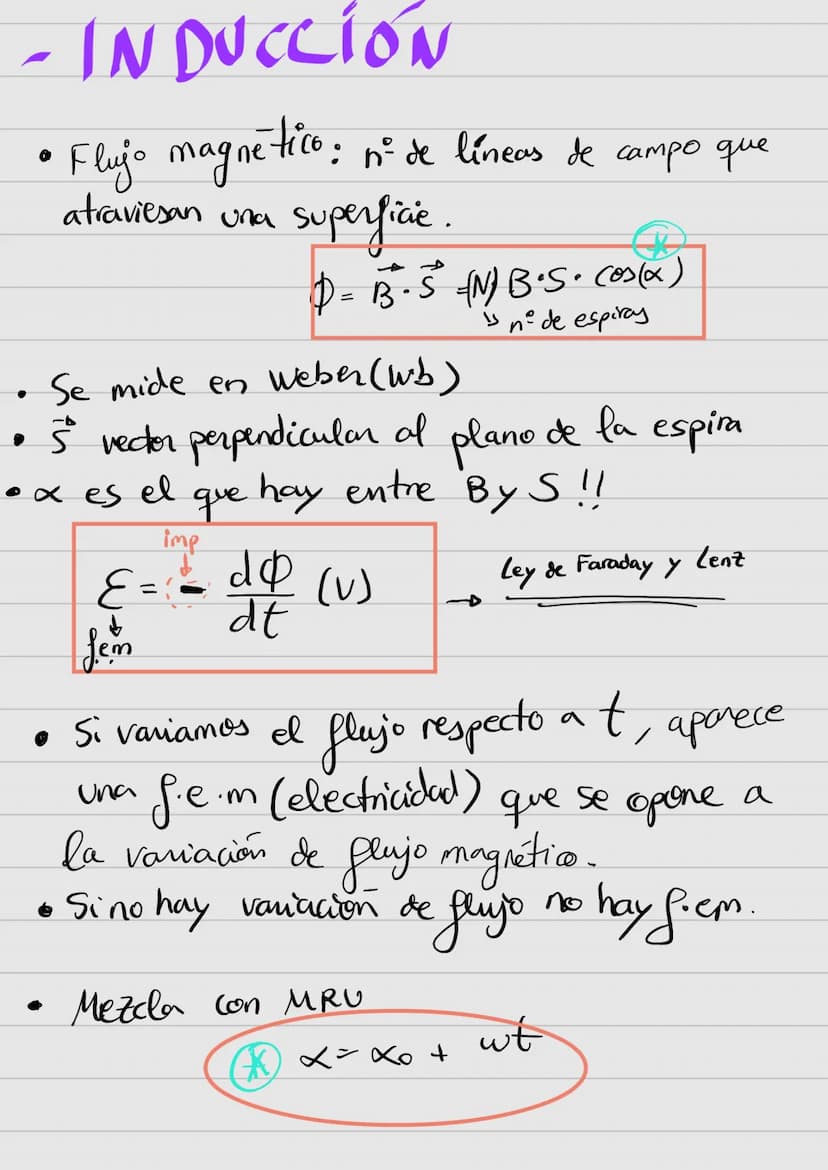 - INDUCCIÓN
• Flujo magnético: nº de líneas de campo que
atraviesan una superficie.
*
ϕ = B⃗ · S⃗ =(N) B·S· cos(α)
↳ nº de espiras
• Se mide en Weber (wb)
• S⃗ vector perpendicular al plano de la espira
• α es el que hay entre B y S!!
imp
↓
ε = - dϕ/dt (V) → Ley de Faraday y Lenz
↓
f.em
• Si variamos el flujo respecto a t, aparece
una f.e.m (electricidad) que se opone a
la variación de flujo magnético.
• Si no hay variación de flujo no hay f.em.
• Mezcla con MRU
* α = α₀ + ωt